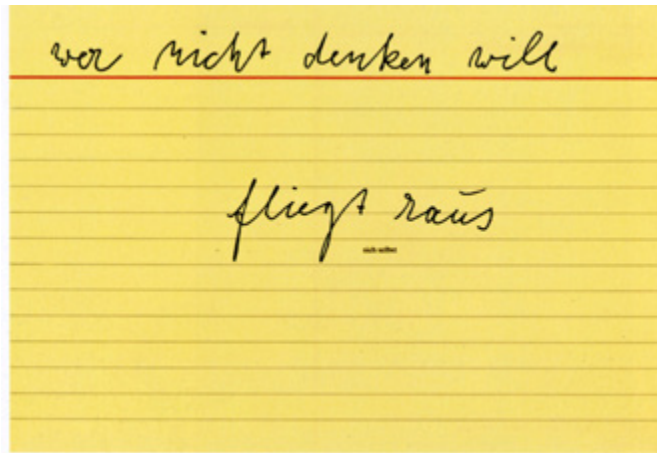 wer nicht denken will
fliegt raus
sich selbst